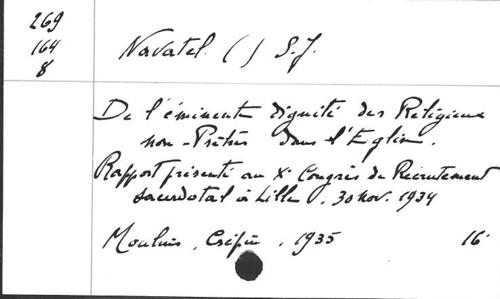 269
164
8
Navatel. ( ) S.J.
De l'éminente dignité des Religieux
non-Prêtres dans l'Eglise.
Rapport présenté au Xe Congrès de Recrutement
sacerdotal à Lille, 30 nov. 1934
Moulins, Crépin, 1935 16°